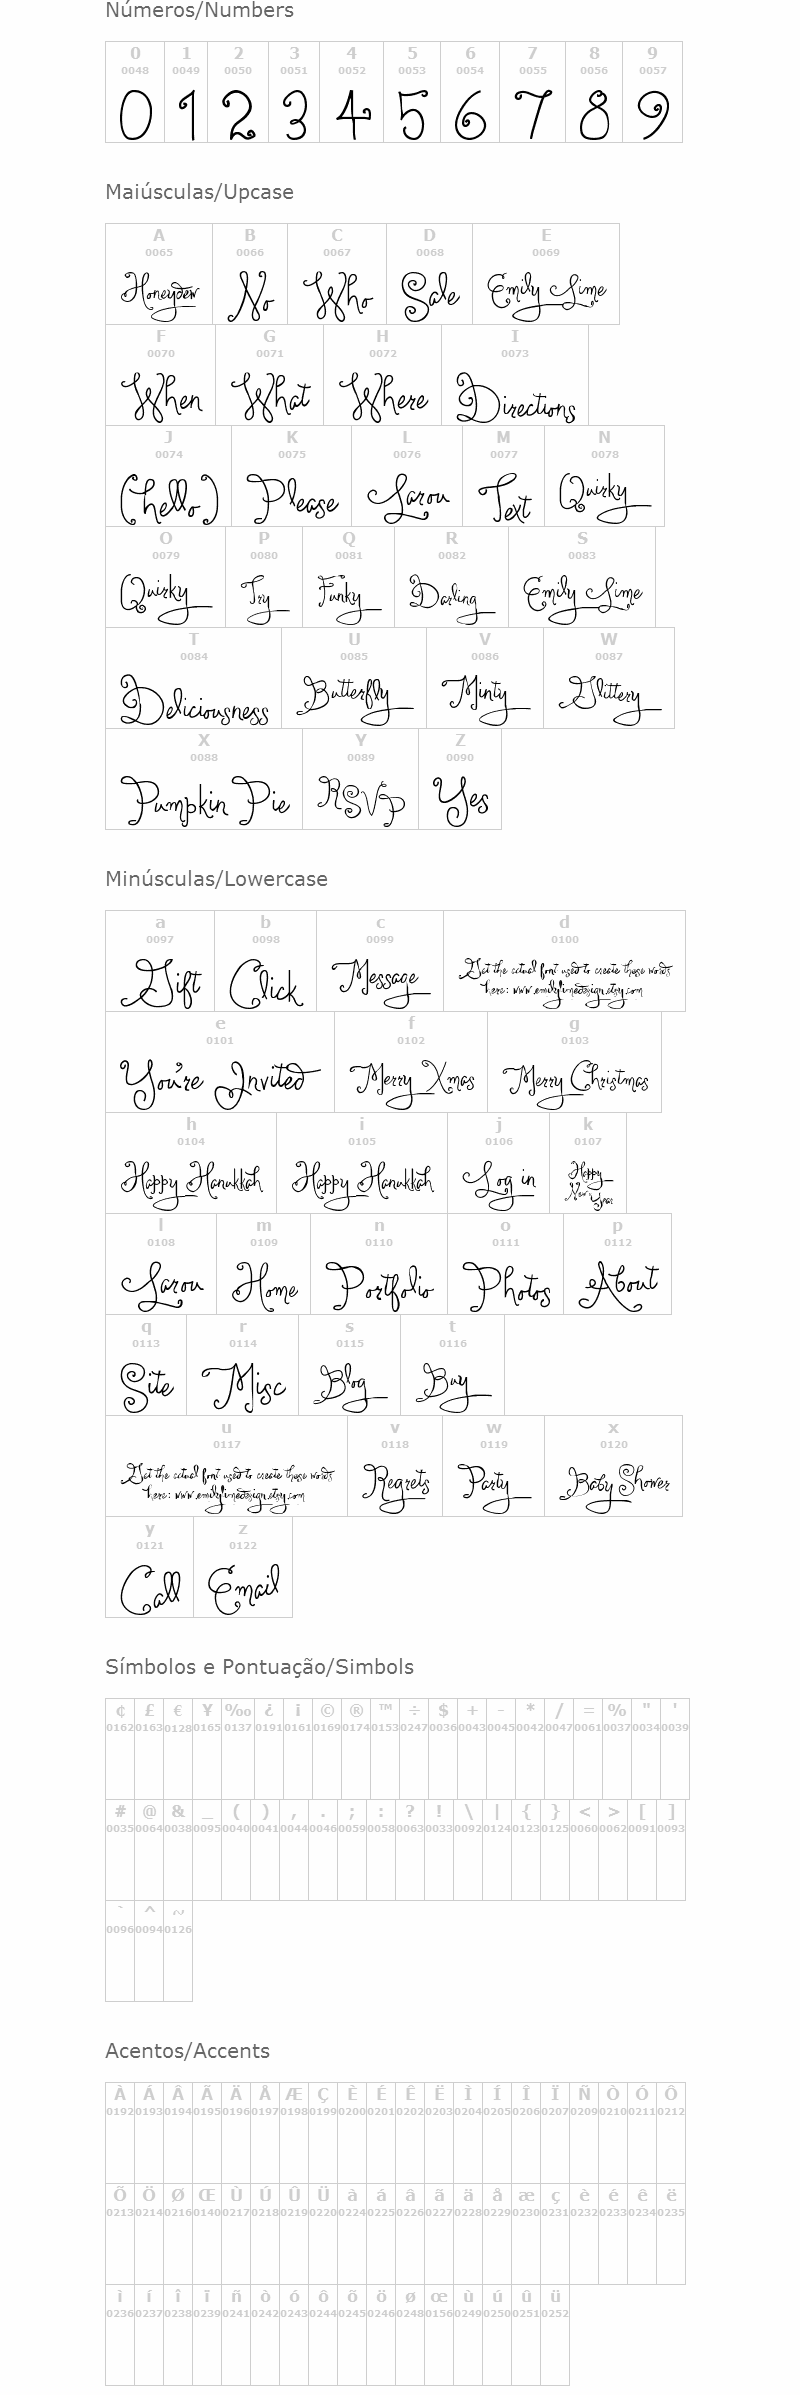 Números/Numbers
0 1 2 3 4 5 6 7 8 9
0048 0049 0050 0051 0052 0053 0054 0055 0056 0057
0 1 2 3 4 5 6 7 8 9
Maiúsculas/Upcase
A B C D E
0065 0066 0067 0068 0069
Honeydew No Who Sale Emily Lime
F G H I
0070 0071 0072 0073
When What Where Directions
J K L M N
0074 0075 0076 0077 0078
(hello) Please Larou Text Quirky
O P Q R S
0079 0080 0081 0082 0083
Quirky Try Funky Darling Emily Lime
T U V W
0084 0085 0086 0087
Deliciousness Butterfly Minty Glittery
X Y Z
0088 0089 0090
Pumpkin Pie RSVP Yes
Minúsculas/Lowercase
a b c d
0097 0098 0099 0100
Gift Click Message Get the actual font used to create these words
here: www.emilylimedesign.etsy.com
e f g
0101 0102 0103
You're Invited Merry Xmas Merry Christmas
h i j k
0104 0105 0106 0107
Happy Hanukkah Happy Hanukkah Log in Happy
New Year
l m n o p
0108 0109 0110 0111 0112
Larou Home Portfolio Photos About
q r s t
0113 0114 0115 0116
Site Misc Blog Buy
u v w x
0117 0118 0119 0120
Get the actual font used to create these words Regrets Party Baby Shower
here: www.emilylimedesign.etsy.com
y z
0121 0122
Call Email
Símbolos e Pontuação/Simbols
¢ £ € ¥ ‰ ¿ ¡ © ® ™ ÷ $ + - * / = % " '
0162 0163 0128 0165 0137 0191 0161 0169 0174 0153 0247 0036 0043 0045 0042 0047 0061 0037 0034 0039
# @ & _ ( ) , . ; : ? ! \ | { } < > [ ]
0035 0064 0038 0095 0040 0041 0044 0046 0059 0058 0063 0033 0092 0124 0123 0125 0060 0062 0091 0093
` ^ ~
0096 0094 0126
Acentos/Accents
À Á Â Ã Ä Å Æ Ç È É Ê Ë Ì Í Î Ï Ñ Ò Ó Ô
0192 0193 0194 0195 0196 0197 0198 0199 0200 0201 0202 0203 0204 0205 0206 0207 0209 0210 0211 0212
Õ Ö Ø Œ Ù Ú Û Ü à á â ã ä å æ ç è é ê ë
0213 0214 0216 0140 0217 0218 0219 0220 0224 0225 0226 0227 0228 0229 0230 0231 0232 0233 0234 0235
ì í î ï ñ ò ó ô õ ö ø œ ù ú û ü
0236 0237 0238 0239 0241 0242 0243 0244 0245 0246 0248 0156 0249 0250 0251 0252